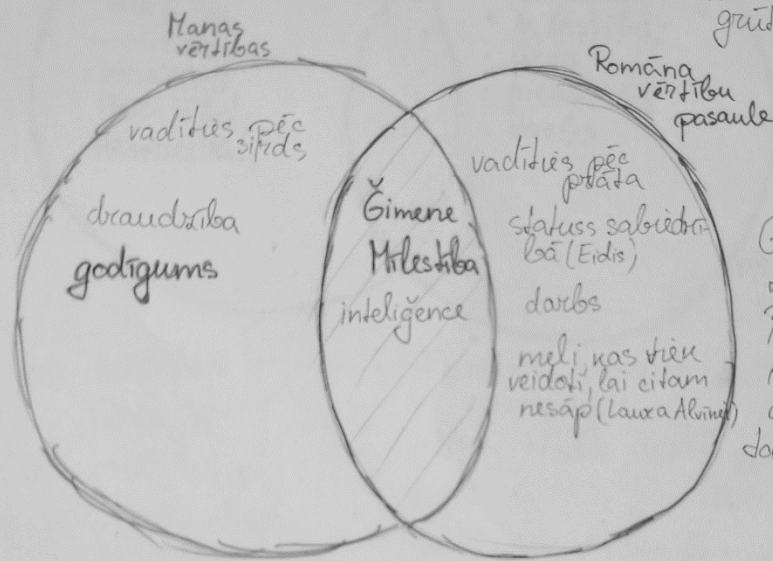 Manas
vērtības
vadīties pēc
sirds
draudzība
godīgums
Ģimene
Mīlestība
inteliģence
grūt
Romāna
vērtību
pasaule
vadīties pēc
prāta
statuss sabiedrī-
bā (Eidis)
darbs
meli, kas tiek
veidoti, lai citam
nesāp (Laura Alvīnei)